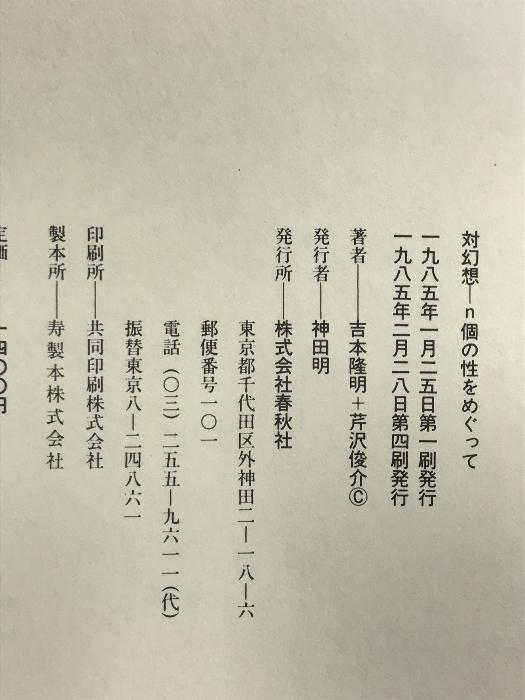 対幻想―n個の性をめぐって
一九八五年一月二五日第一刷発行
一九八五年二月二八日第四刷発行
著者――吉本隆明＋芹沢俊介Ⓒ
発行者――神田明
発行所――株式会社春秋社
東京都千代田区外神田二―一八―六
郵便番号一〇一
電話（〇三）二五五―九六一一（代）
振替東京八―二四八六一
印刷所――共同印刷株式会社
製本所――寿製本株式会社
定価 一四〇〇円